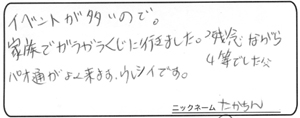 イベントが多いので。
家族でガラガラくじに行きました。残念ながら
4等でした
パオ通がよく来ます、ウレシイです。
ニックネーム たかちん